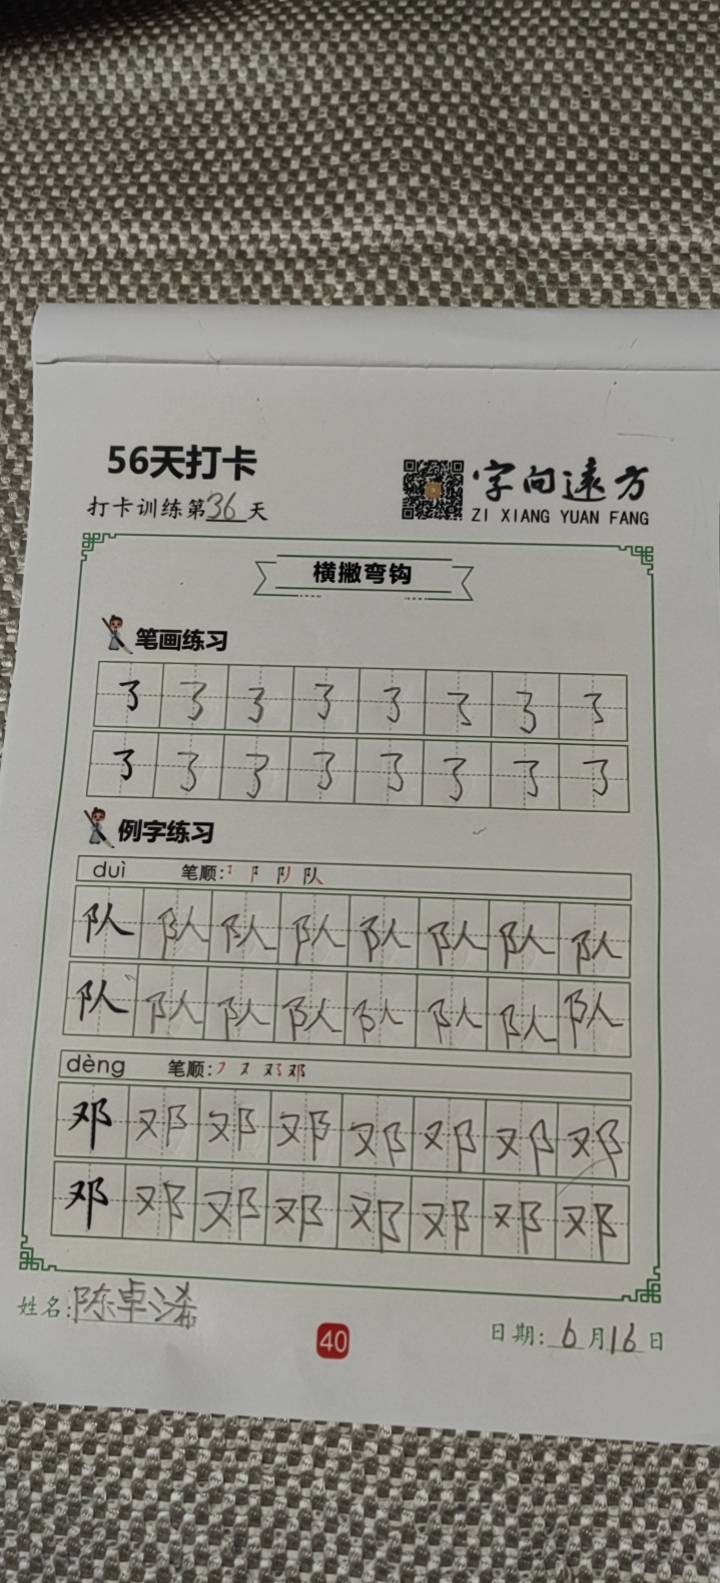 56天打卡
字向远方
打卡训练第36天
ZI XIANG YUAN FANG
横撇弯钩
笔画练习
㇌ ㇌ ㇌ ㇌ ㇌ ㇌ ㇌ ㇌
㇌ ㇌ ㇌ ㇌ ㇌ ㇌ ㇌ ㇌
例字练习
duì 笔顺: ㇌ 阝 队
队 队 队 队 队 队 队 队
队 队 队 队 队 队 队 队
dèng 笔顺: ㇇ 又 邓
邓 邓 邓 邓 邓 邓 邓 邓
邓 邓 邓 邓 邓 邓 邓 邓
姓名:陈卓浠
40
日期: 6月16日